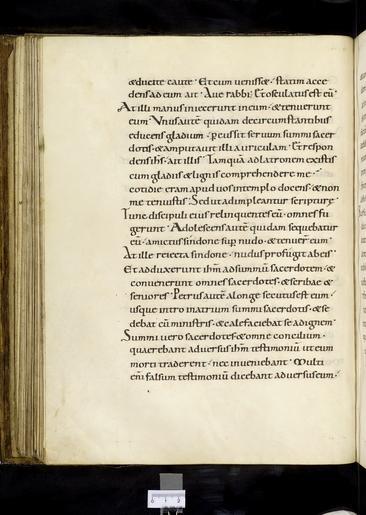 & ducite caute · Et cum venisset · statim acce
dens ad eum ait · Ave rabbi; Et osculatus est eū ·
At illi manus iniecerunt in eum · & tenuerunt
eum · Unus autē quidam de circumstantibus
educens gladium · pcussit servum summi sacer
dotis · & amputavit illi auriculam · Et respon
dens ihs · ait illis · Tamquā ad latronem existis
cum gladiis & lignis comprehendere me ·
cotidie eram apud vos in templo docens · & non
me tenuistis · Sed ut adimpleantur scripturę ·
Tunc discipuli eius relinquentes eū · omnes fu
gerunt · Adolescens autē quidam sequebatur
eū · amictus sindone sup nudo · & tenuer eum ·
At ille reiecta sindone · nudus profugit ab eis ·
Et adduxerunt ihm ad summū sacerdotem · &
convenerunt omnes sacerdotes · & scribae &
seniores · Petrus autē a longe secutus est eum ·
usque intro atrium summi sacerdotis · & se
debat cū ministris · & calefaciebat se ad ignem ·
Summi vero sacerdotes · & omne concilium ·
quaerebant adversus ihm testimoniū · ut eum
morti traderent · nec inveniebant · Multi
enī falsum testimoniū dicebant adversus eum ·